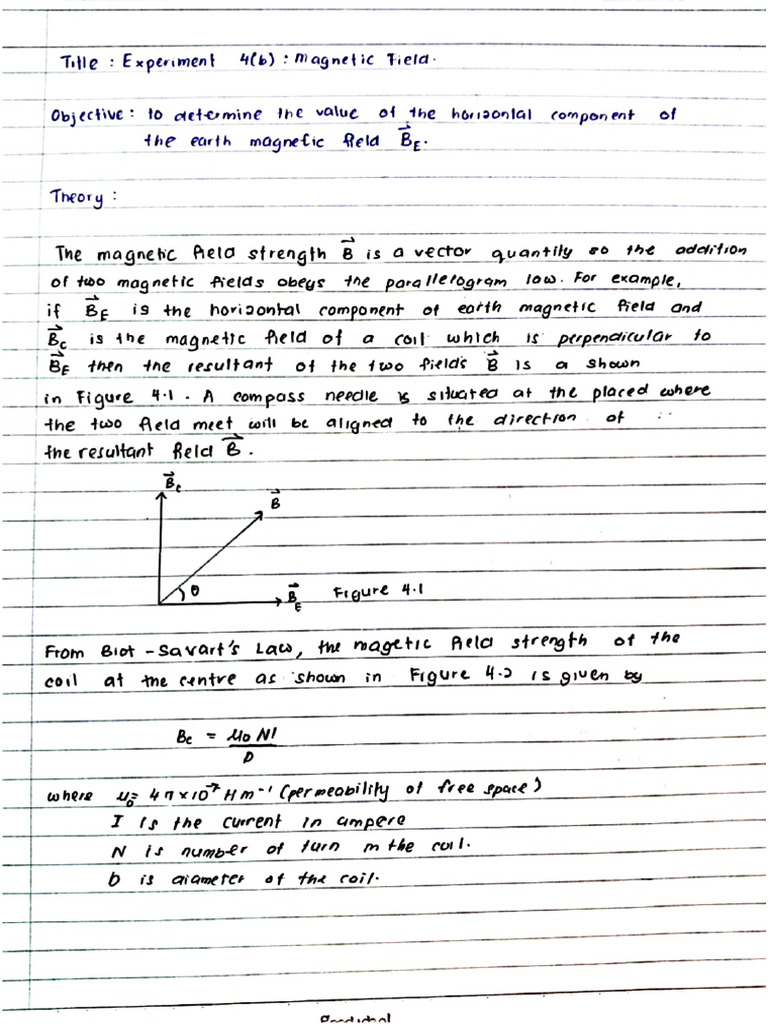 Title : Experiment 4(b) : Magnetic Field.
Objective : to determine the value of the horizontal component of
the earth magnetic field B⃗E.
Theory :
The magnetic field strength B⃗ is a vector quantity so the addition
of two magnetic fields obeys the parallelogram low. For example,
if B⃗E is the horizontal component of earth magnetic field and
B⃗c is the magnetic field of a coil which is perpendicular to
B⃗E then the resultant of the two fields B⃗ is a shown
in Figure 4.1. A compass needle is situated at the placed where
the two field meet will be aligned to the direction of
the resultant field B⃗.
B⃗c
B⃗
θ
B⃗E
Figure 4.1
From Biot - Savart's Law, the magetic field strength of the
coil at the centre as shown in Figure 4.2 is given by
Bc = μ0 NI
D
where μ0 = 4π × 10⁻⁷ H m⁻¹ (permeability of free space)
I is the current in ampere
N is number of turn in the coil.
D is diameter of the coil.